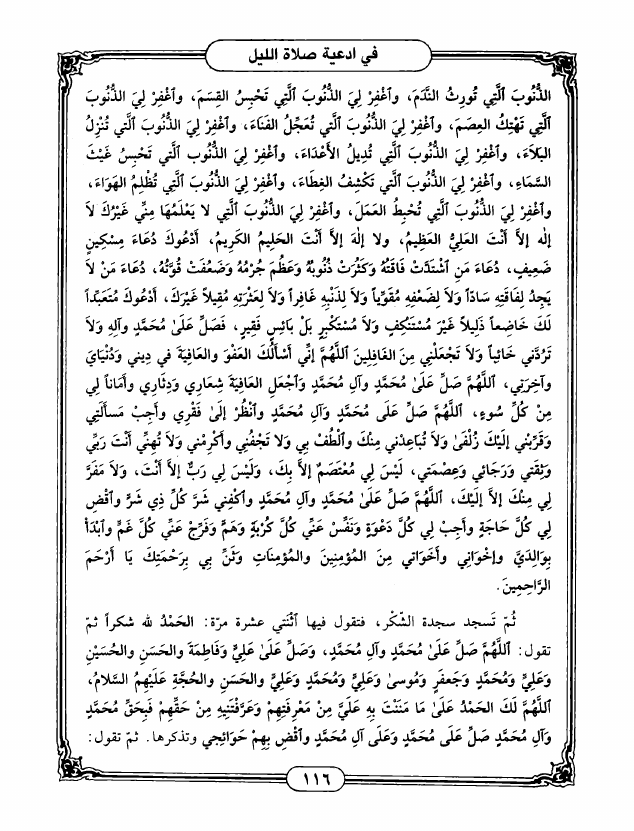 في ادعية صلاة الليل
الذُّنُوبَ ٱلَّتِي تُورِثُ النَّدَمَ، وٱغْفِرْ لِيَ الذُّنُوبَ ٱلَّتِي تَحْبِسُ القِسَمَ، وٱغْفِرْ لِيَ الذُّنُوبَ
ٱلَّتِي تَهْتِكُ العِصَمَ، وٱغْفِرْ لِيَ الذُّنُوبَ ٱلَّتي تُعَجِّلُ الفَنَاءَ، وٱغْفِرْ لِيَ الذُّنُوبَ ٱلَّتي تُنْزِلُ
البَلَاءَ، وٱغْفِرْ لِيَ الذُّنُوبَ ٱلَّتِي تُدِيلُ الأَعْدَاءَ، وٱغْفِرْ لِيَ الذُّنُوبَ ٱلَّتي تَحْبِسُ غَيْثَ
السَّمَاءِ، وٱغْفِرْ لِيَ الذُّنُوبَ ٱلَّتي تَكْشِفُ الغِطَاءَ، وٱغْفِرْ لِيَ الذُّنُوبَ ٱلَّتِي تُظْلِمُ الهَوَاءَ،
وٱغْفِرْ لِيَ الذُّنُوبَ ٱلَّتِي تُحْبِطُ العَمَلَ، وٱغْفِرْ لِيَ الذُّنُوبَ ٱلَّتِي لا يَعْلَمُهَا مِنِّي غَيْرُكَ لاَ
إِلٰه إلاَّ أَنْتَ العَلِيُّ العَظِيمُ، ولا إلٰهَ إلاَّ أَنْتَ الحَلِيمُ الكَرِيمُ، أَدْعُوكَ دُعَاءَ مِسْكِينٍ
ضَعِيفٍ، دُعَاءَ مَنِ ٱشْتَدَّتْ فَاقَتُهُ وَكَثُرَتْ ذُنُوبُهُ وَعَظُمَ جُرْمُهُ وَضَعُفَتْ قُوَّتُهُ، دُعَاءَ مَنْ لاَ
يَجِدُ لِفَاقَتِهِ سَادّاً وَلاَ لِضَعْفِهِ مُقَوِّياً وَلاَ لِذَنْبِهِ غَافِراً وَلاَ لِعَثْرَتِهِ مُقِيلاً غَيْرَكَ، أَدْعُوكَ مُتَعَبِّداً
لَكَ خَاضِعاً ذَلِيلاً غَيْرَ مُسْتَنْكِفٍ وَلاَ مُسْتَكْبِرٍ بَلْ بَائِسٍ فَقِيرٍ، فَصَلِّ عَلىٰ مُحَمَّدٍ وآلِهِ وَلاَ
تَرُدَّني خَائِباً وَلاَ تَجْعَلْنِي مِنَ الغَافِلِينَ اَللَّهُمَّ إنِّي أَسْأَلُكَ العَفْوَ والعَافِيَةَ في دِيني وَدُنْيَايَ
وآخِرَتِي، اَللَّهُمَّ صَلِّ عَلَىٰ مُحَمَّدٍ وآلِ مُحَمَّدٍ وٱجْعَلِ العَافِيَةَ شِعَارِي وَدِثَارِي وأَمَاناً لِي
مِنْ كُلِّ سُوءٍ، اَللَّهُمَّ صَلِّ عَلَى مُحَمَّدٍ وَآلِ مُحَمَّدٍ وٱنْظُرْ إلىٰ فَقْرِي وأَجِبْ مَسأَلَتِي
وَقَرِّبْنِي إِلَيْكَ زُلْفَىٰ وَلاَ تُبَاعِدْنِي مِنْكَ وٱلْطُفْ بِي وَلا تَجْفُنِي وأَكْرِمْنِي وَلاَ تُهِنِّي أَنْتَ رَبِّي
وَثِقَتِي وَرَجَائِي وَعِصْمَتِي، لَيْسَ لِي مُعْتَصَمٌ إلاَّ بِكَ، وَلَيْسَ لِي رَبٌّ إلاَّ أَنْتَ، وَلاَ مَفَرَّ
لِي مِنْكَ إلاَّ إِلَيْكَ، اَللَّهُمَّ صَلِّ عَلَىٰ مُحَمَّدٍ وآلِ مُحَمَّدٍ وٱكْفِنِي شَرَّ كُلِّ ذِي شَرٍّ وٱقْضِ
لِي كُلَّ حَاجَةٍ وأَجِبْ لِي كُلَّ دَعْوَةٍ وَنَفِّسْ عَنِّي كُلَّ كُرْبَةٍ وَهَمٍّ وَفَرِّجْ عَنِّي كُلَّ غَمٍّ وٱبْدَأْ
بِوَالِدَيَّ وإخْوَانِي وأَخَوَاتي مِنَ المُؤْمِنِينَ والمُؤْمِنَاتِ وَثَنِّ بِي بِرَحْمَتِكَ يَا أَرْحَمَ
الرَّاحِمِينَ.
ثُمّ تَسجد سجدة الشّكْر، فتقول فيها ٱثْنَتي عشرة مرّة: الحَمْدُ لله شكراً ثمّ
تقول: اَللَّهُمَّ صَلِّ عَلَىٰ مُحَمَّدٍ وآلِ مُحَمَّدٍ، وَصَلِّ عَلَىٰ عَلِيٍّ وَفَاطِمَةَ والحَسَنِ والحُسَيْنِ
وَعَلِيٍّ وَمُحَمَّدٍ وَجَعفَرٍ وَمُوسىٰ وَعَلِيٍّ وَمُحَمَّدٍ وَعَلِيٍّ والحَسَنِ والحُجَّةِ عَلَيْهِمُ السَّلامُ،
اَللَّهُمَّ لَكَ الحَمْدُ عَلَىٰ مَا مَنَنْتَ بِهِ عَلَيَّ مِنْ مَعرِفَتِهِمْ وَعَرَّفْتَنِيهِ مِنْ حَقِّهِمْ فَبِحَقِّ مُحَمَّدٍ
وَآلِ مُحَمَّدٍ صَلِّ عَلَى مُحَمَّدٍ وَعَلَى آلِ مُحَمَّدٍ وٱقْضِ بِهِمْ حَوَائِجي وتذكرها. ثمّ تقول:
١١٦